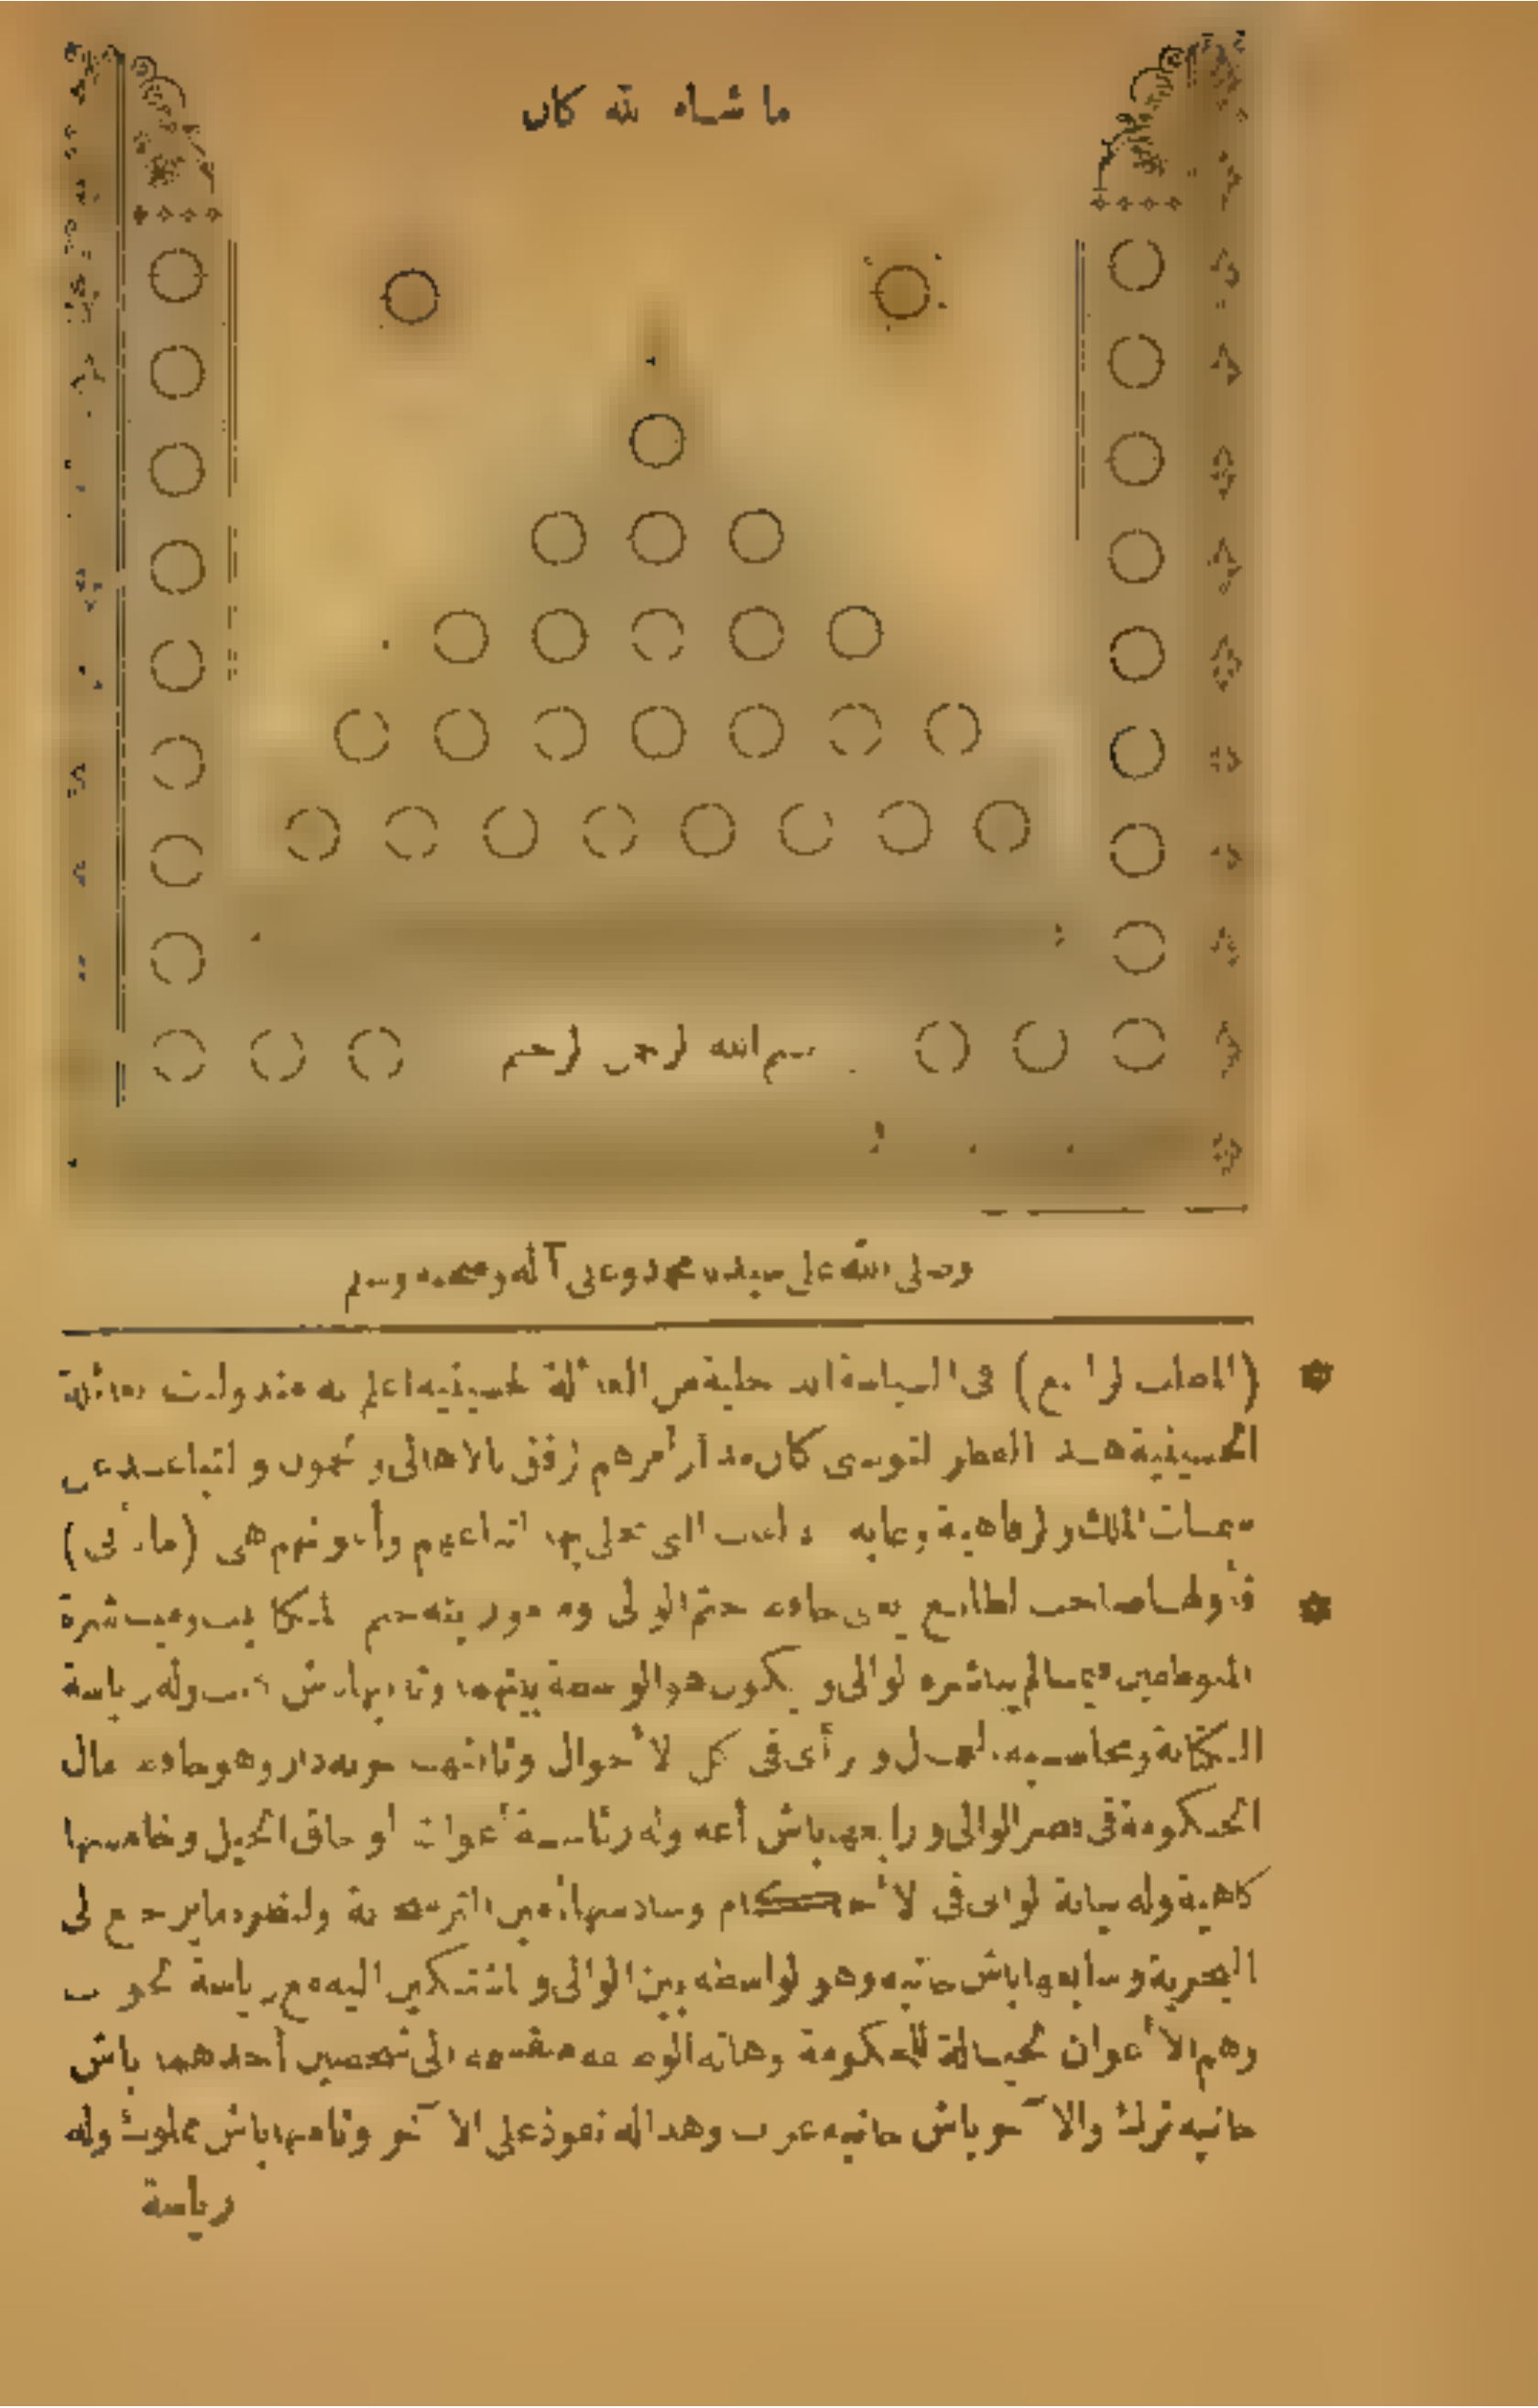 ما شاء الله كان
بسم الله الرحمن الرحيم
وصلى الله على سيدنا محمد وعلى آله وصحبه وسلم
(المطلب الرابع) في السياسة الداخلية من العائلة الحسينية اعلم انه منذ ولايت العائلة
الحسينية هذا القطر التونسي كان مدار أمرهم الرفق بالاهالي و والتباعد عن
سمات الملك والرفاهية وغاية الالقاب التي تحلى بها اتباعهم وأعوانهم هي (ما يأتي)
فأولها صاحب الطابع يعني حافظ ختم الوالي ومأموريته ختم المكاتيب ومباشرة
المتوظفين فيما لم يباشره الوالي و يكون هو الواسطة بينهما وثانيها باش كاتب وله رياسة
الكتابة ومحاسبة العمال و الرأى في كل الأحوال وثالثها خزنه دار وهو حافظ مال
الحكومة في قصر الوالي ورابعها باش أغه وله رئاسة أعوان أوجاق الخيل وخامسها
كاهية وله نيابة الوالي في الأحكام وسادسها أمين الترسخانة وله النظر فيما يرجع الى
البحرية وسابعها باش حانبه وهو الواسطه بين الوالي و المشتكين اليه مع رياسة الحوانب
وهم الأعوان الخيالة للحكومة وهاته الوظيفه منقسمه الى شخصين أحدهما باش
حانبه ترك والآخر باش حانبه عرب وهذا له نفوذ على الآخر وثامنها باش مملوك وله
رياسة